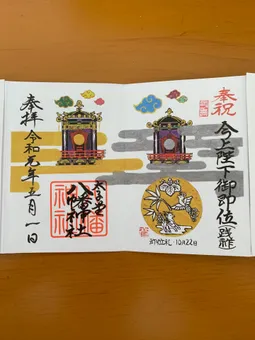 奉祝
今上陛下御即位践祚
即位礼・10月22日
太子堂
八幡神社
奉拝
令和元年五月一日